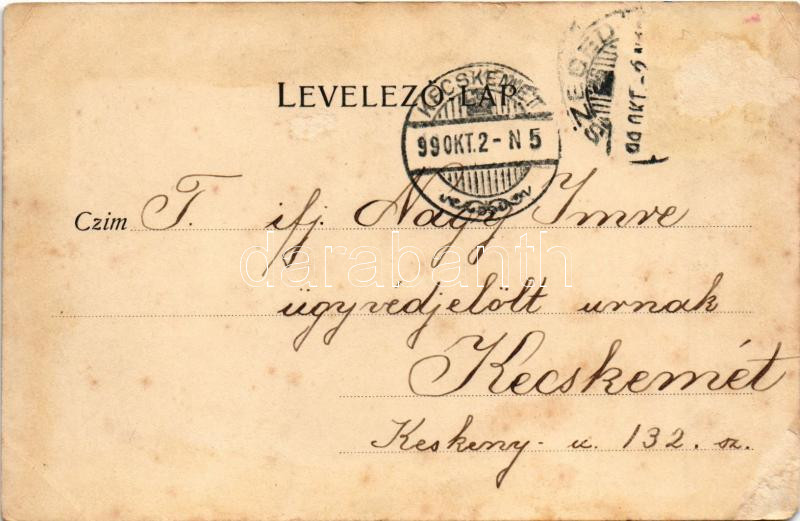 LEVELEZŐ LAP
KECSKEMÉT
99 OKT. 2 - N 5
SZEGED
99 OKT. - 2
Czim T. ifj. Nagy Imre
darabanth
ügyvédjelölt urnak
Kecskemét
Keskeny- u. 132. sz.